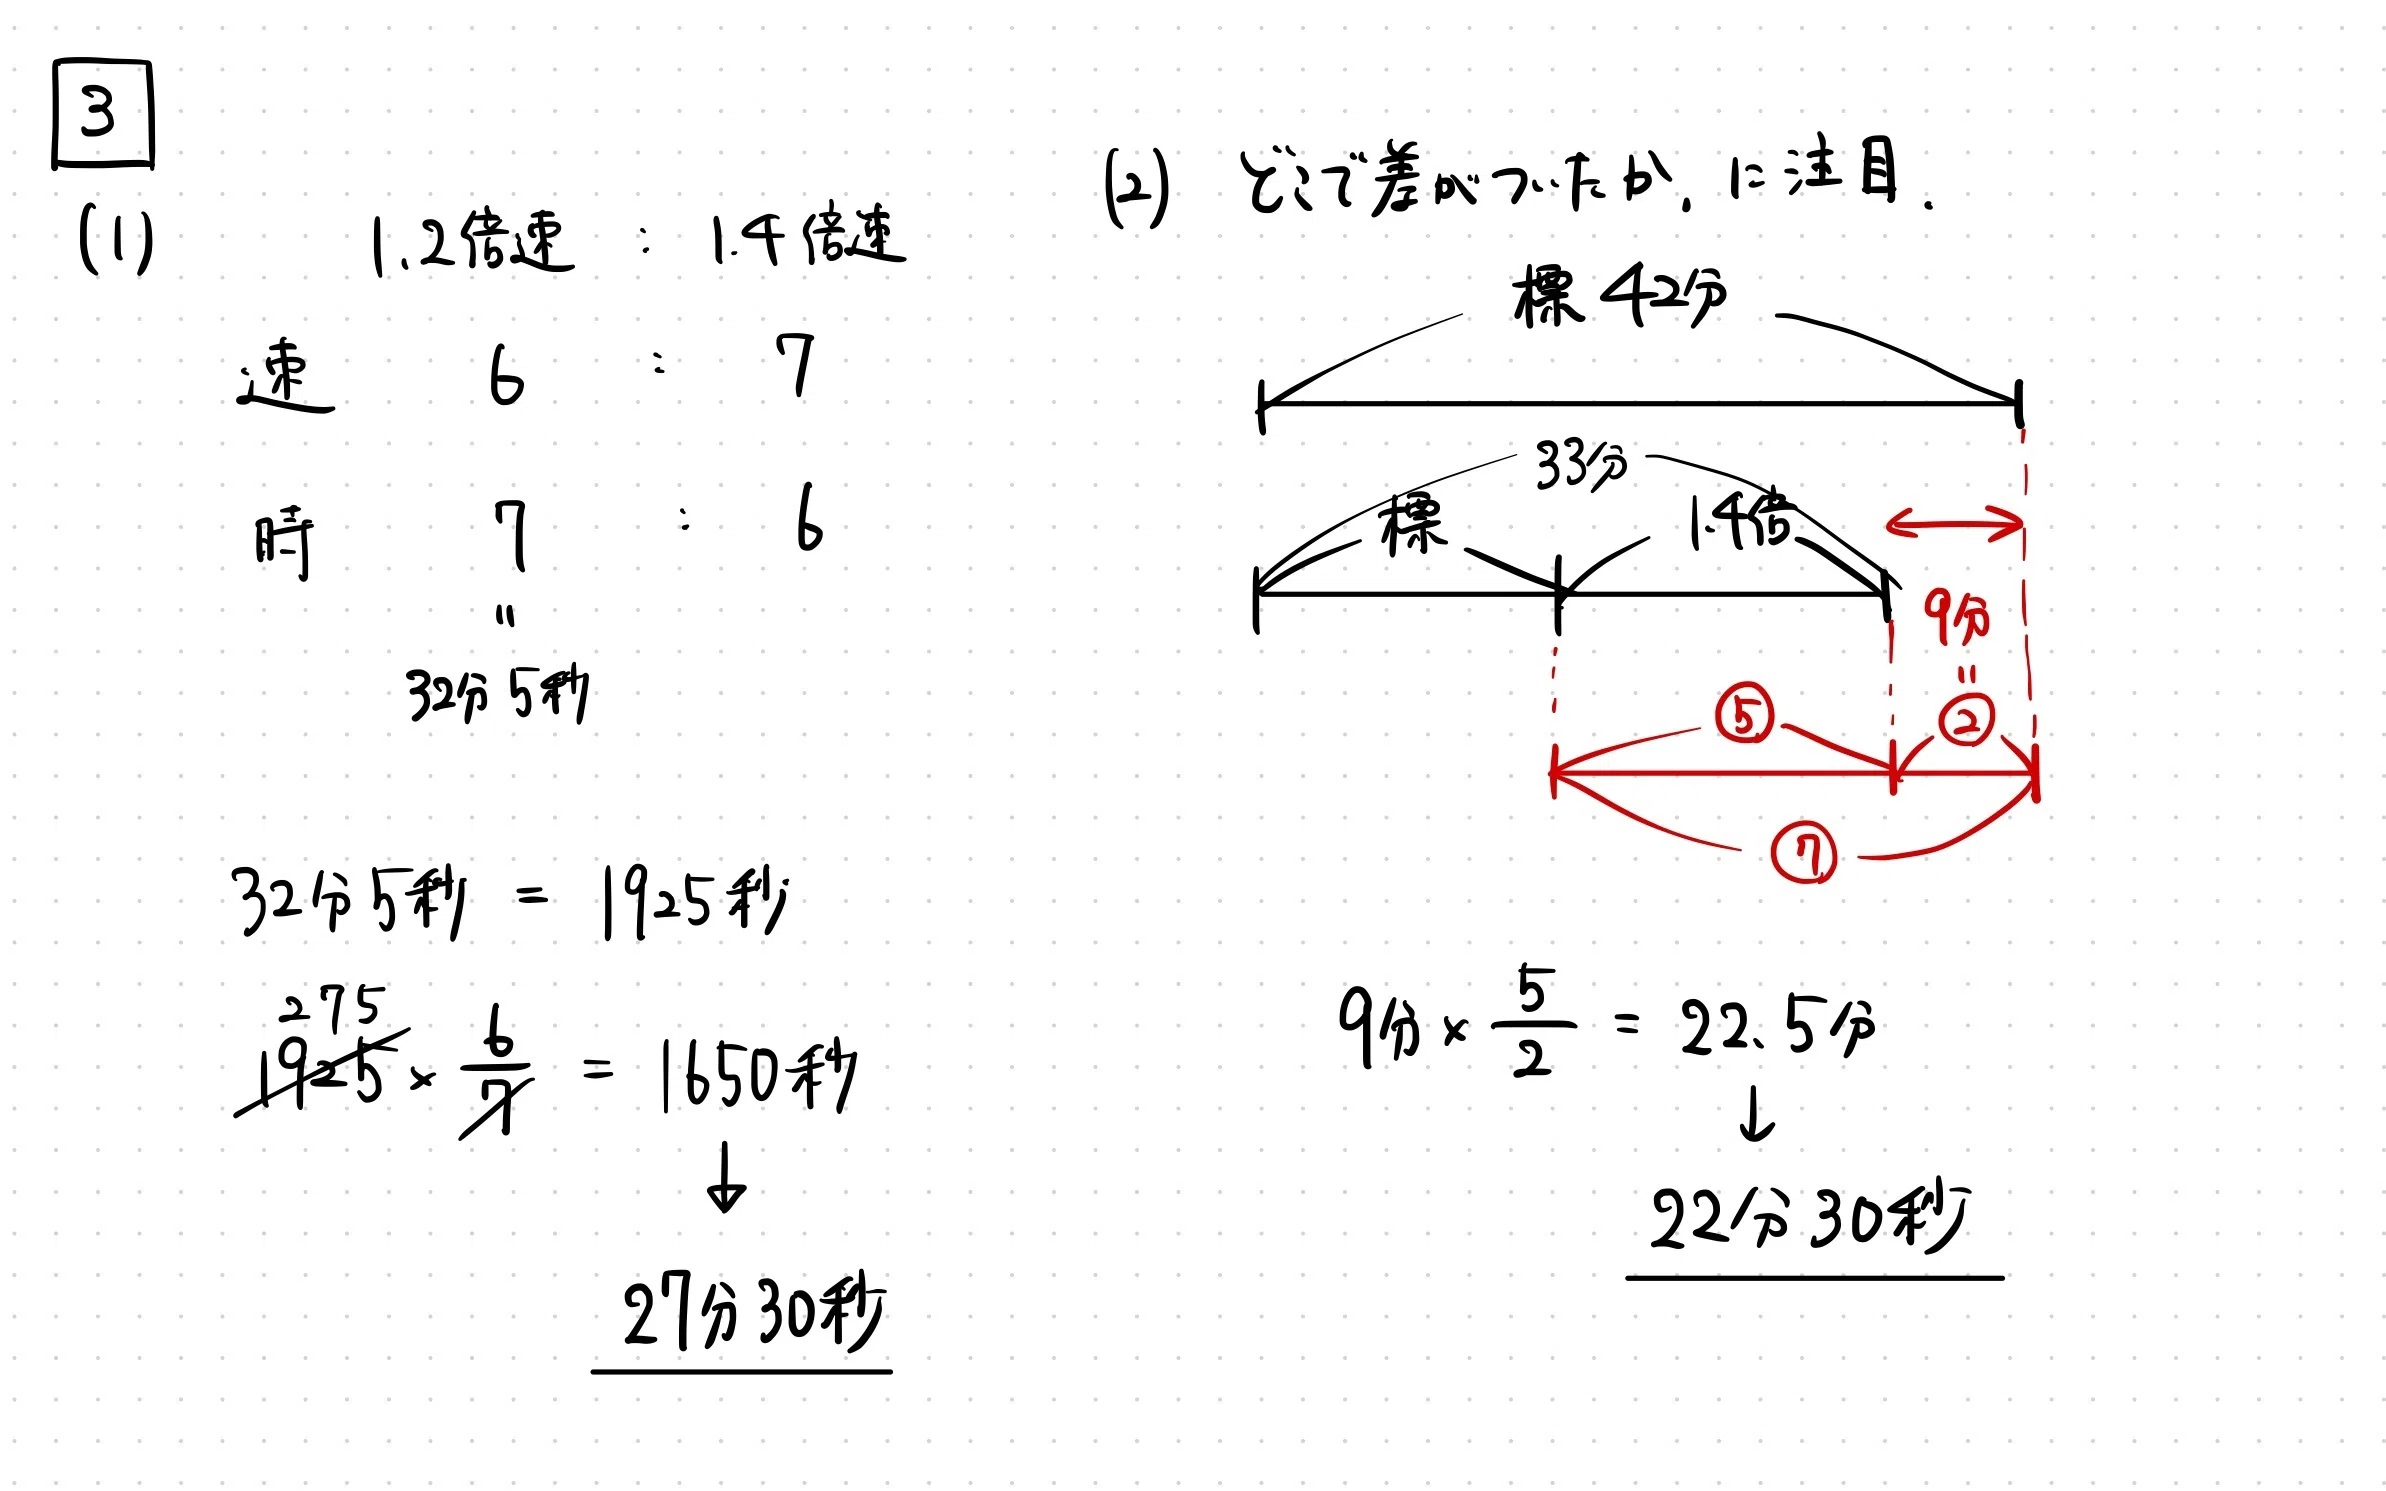 3
(1)
1.2倍速 : 1.4倍速
速 6 : 7
時 7 : 6
=
32分5秒
32分5秒 = 1925秒
275
1925 × 6/7 = 1650秒
↓
27分30秒
(2) どこで差がついたか、に注目.
標 42分
33分
標 1.4倍
9分
=
⑤ ②
⑦
9分 × 5/2 = 22.5分
↓
22分30秒